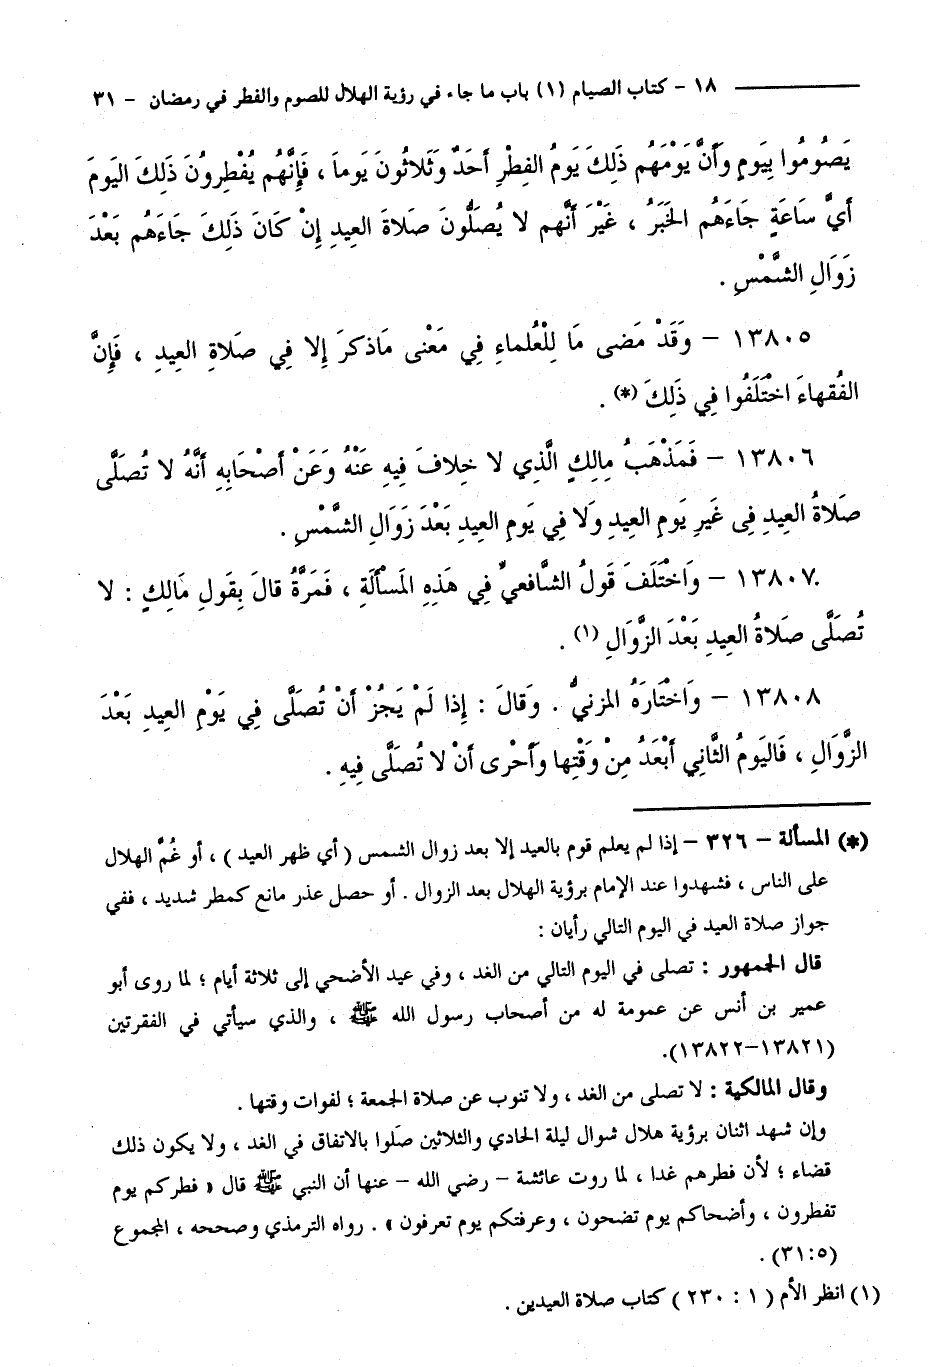 ١٨ - كتاب الصيام (١) باب ما جاء في رؤية الهلال للصوم والفطر في رمضان - ٣١
يَصُومُوا بِيَومٍ وَأَنَّ يَوْمَهُم ذلِكَ يَومُ الفِطْرِ أَحَدٌ وَثَلاثُونَ يَوماَ ، فَإِنَّهُم يُفْطِرونَ ذَلِكَ اليَومَ
أَيَّ سَاعَةٍ جَاءَهُم الخَبَرُ ، غَيْرَ أَنَّهم لا يُصَلُّونَ صَلاةَ العِيدِ إِنْ كَانَ ذَلِكَ جَاءَهُم بَعْدَ
زَوَالِ الشَّمْسِ .
١٣٨٠٥ - وَقَدْ مَضى مَا لِلْعُلماءِ فِي مَعْنى مَاذكرَ إِلا فِي صَلاةِ العِيدِ ، فَإِنَّ
الفُقهاءَ اخْتَلَفُوا فِي ذَلِكَ (*) .
١٣٨٠٦ - فَمَذْهَبُ مِالِكٍ الَّذِي لا خلافَ فِيهِ عَنْهُ وَعَنْ أَصْحَابِهِ أَنَّهُ لا تُصَلَّى
صَلاةُ العِيدِ فِى غَيرِ يَومِ العِيدِ وَلا فِي يَومِ العِيدِ بَعْدَ زَوَالِ الشَّمْسِ .
١٣٨٠٧ - وَاخْتَلَفَ قَولُ الشَّافعيِّ فِي هَذِهِ المَسأَلَةِ ، فَمَرَّةً قالَ بِقَولِ مَالِكٍ : لا
تُصَلَّى صَلاةُ العِيدِ بَعْدَ الزَّوَالِ (١) .
١٣٨٠٨ - وَاخْتَارَهُ المزنيُّ . وَقَالَ : إِذا لَمْ يَجُزْ أَنْ تُصَلَّى فِي يَوْمِ العِيدِ بَعْدَ
الزَّوَالِ ، فَاليَومُ الثَّانِي أَبْعَدُ مِنْ وَقْتِها وَأَحْرى أَنْ لا تُصَلَّى فِيهِ .
(*) المسألة - ٣٢٦ - إذا لم يعلم قوم بالعيد إلا بعد زوال الشمس ( أي ظهر العيد ) ، أو غُمَّ الهلال
على الناس ، فشهدوا عند الإمام برؤية الهلال بعد الزوال . أو حصل عذر مانع كمطر شديد ، ففي
جواز صلاة العيد في اليوم التالي رأيان :
قال الجمهور : تصلى في اليوم التالي من الغد ، وفي عيد الأضحى إلى ثلاثة أيام ؛ لما روى أبو
عمير بن أنس عن عمومة له من أصحاب رسول الله ﷺ ، والذي سيأتي في الفقرتين
(١٣٨٢١-١٣٨٢٢).
وقال المالكية : لا تصلى من الغد ، ولا تنوب عن صلاة الجمعة ؛ لفوات وقتها .
وإن شهد اثنان برؤية هلال شوال ليلة الحادي والثلاثين صَلوا بالاتفاق في الغد ، ولا يكون ذلك
قضاء ؛ لأن فطرهم غدا ، لما روت عائشة - رضي الله - عنها أن النبي ﷺ قال « فطركم يوم
تفطرون ، وأضحاكم يوم تضحون ، وعرفتكم يوم تعرفون » . رواه الترمذي وصححه ، المجموع
(٣١:٥) .
(١) انظر الأم ( ١ : ٢٣٠ ) كتاب صلاة العيدين .